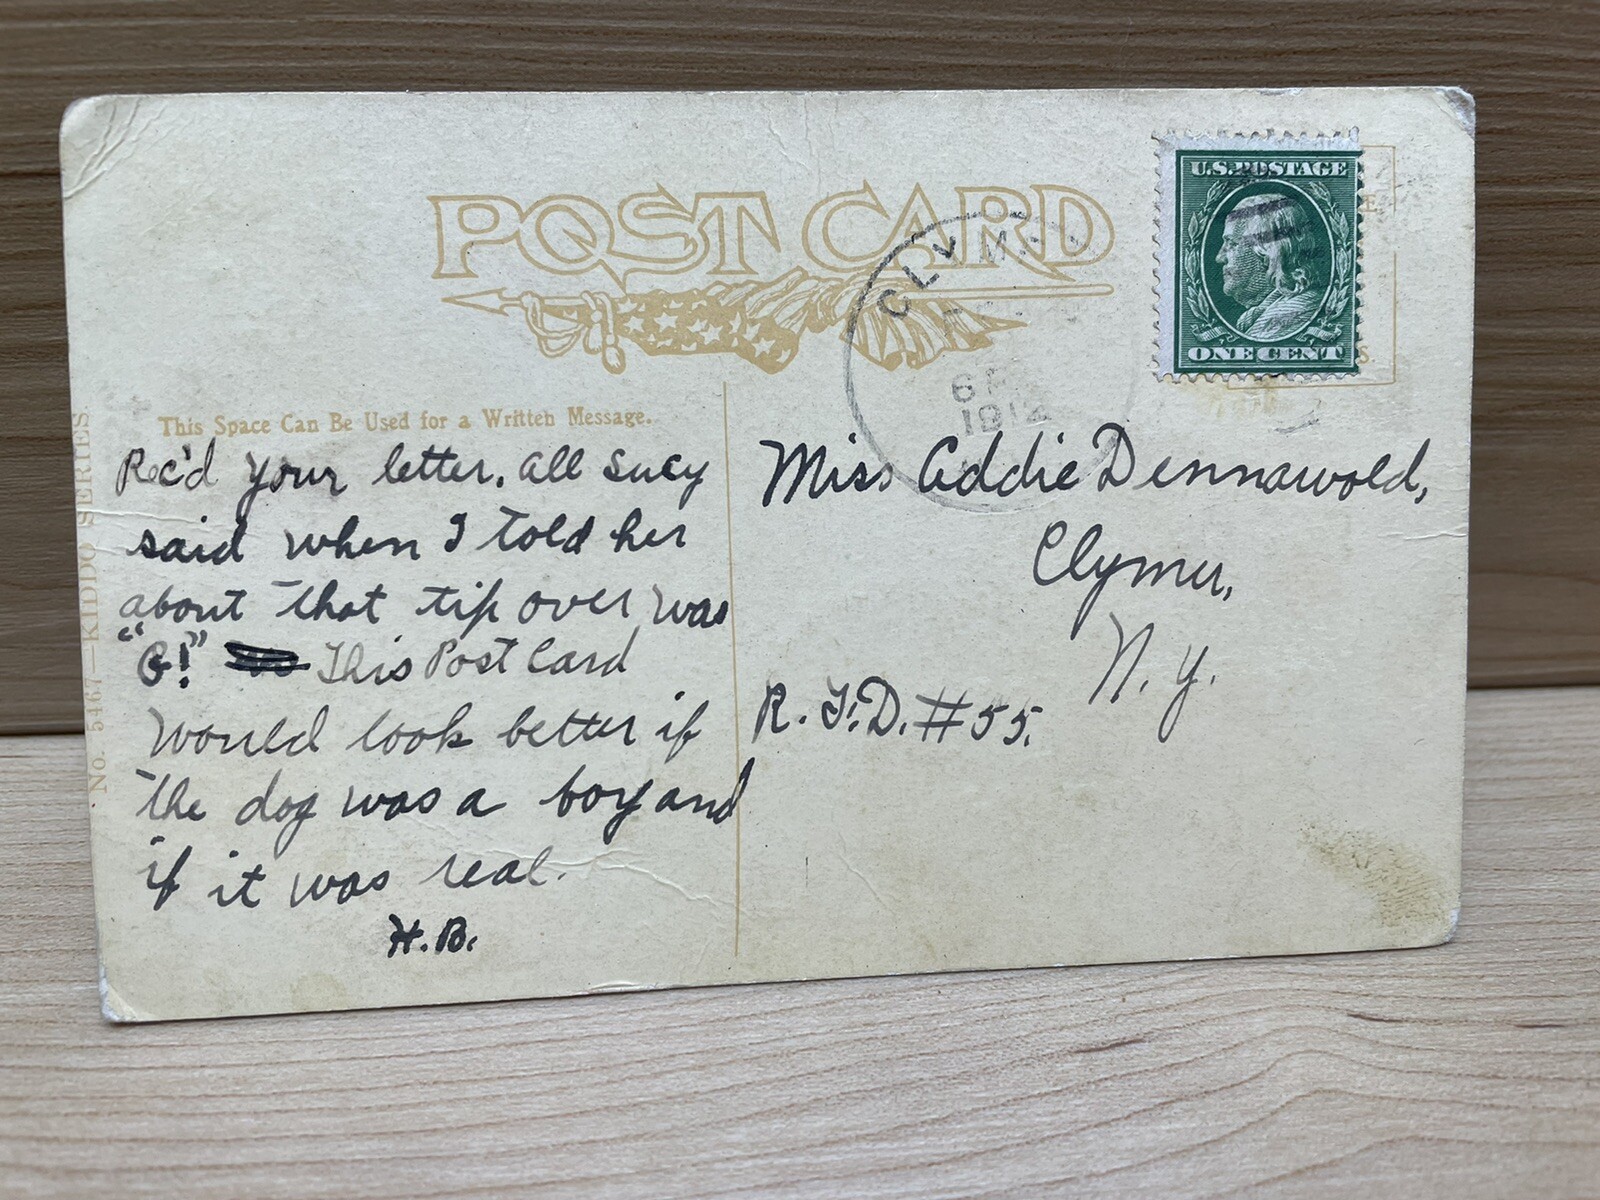 POST CARD
U.S. POSTAGE
ONE CENT
CLYM
6 P
1912
This Space Can Be Used for a Written Message.
No. 5467—KIDDO SERIES.
Rec'd your letter. all sucy
said when I told her
about that tip over was
"G!" This Post Card
would look better if
the dog was a boy and
if it was real.
H.B.
Miss Addie Dennawold,
Clymer,
N.Y.
R.F.D. #55.